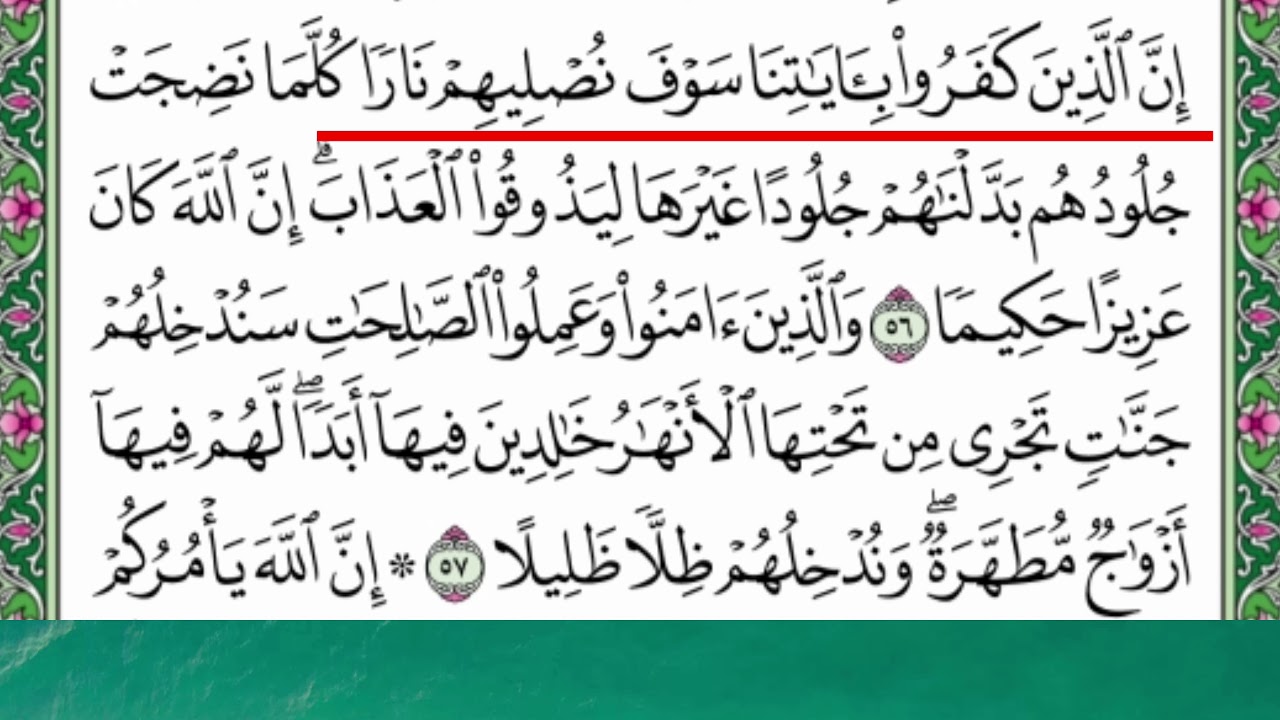 إِنَّ ٱلَّذِينَ كَفَرُوا۟ بِـَٔايَـٰتِنَا سَوْفَ نُصْلِيهِمْ نَارًا كُلَّمَا نَضِجَتْ
جُلُودُهُم بَدَّلْنَـٰهُمْ جُلُودًا غَيْرَهَا لِيَذُوقُوا۟ ٱلْعَذَابَ ۗ إِنَّ ٱللَّهَ كَانَ
عَزِيزًا حَكِيمًا ٥٦ وَٱلَّذِينَ ءَامَنُوا۟ وَعَمِلُوا۟ ٱلصَّـٰلِحَـٰتِ سَنُدْخِلُهُمْ
جَنَّـٰتٍ تَجْرِى مِن تَحْتِهَا ٱلْأَنْهَـٰرُ خَـٰلِدِينَ فِيهَآ أَبَدًا ۖ لَّهُمْ فِيهَآ
أَزْوَٰجٌ مُّطَهَّرَةٌ ۖ وَنُدْخِلُهُمْ ظِلًّا ظَلِيلًا ٥٧ ۞ إِنَّ ٱللَّهَ يَأْمُرُكُمْ